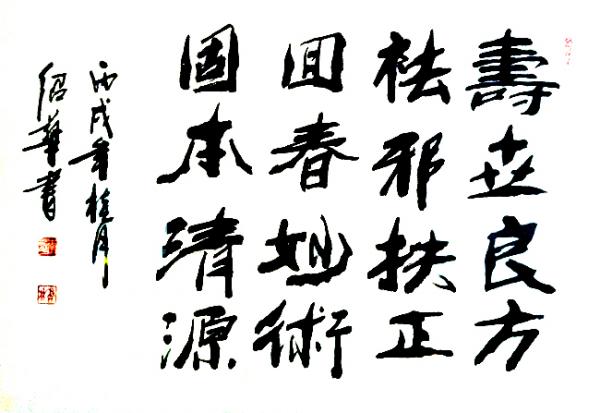 壽世良方
祛邪扶正
回春妙術
固本清源
丙戌年桂月
紹華書